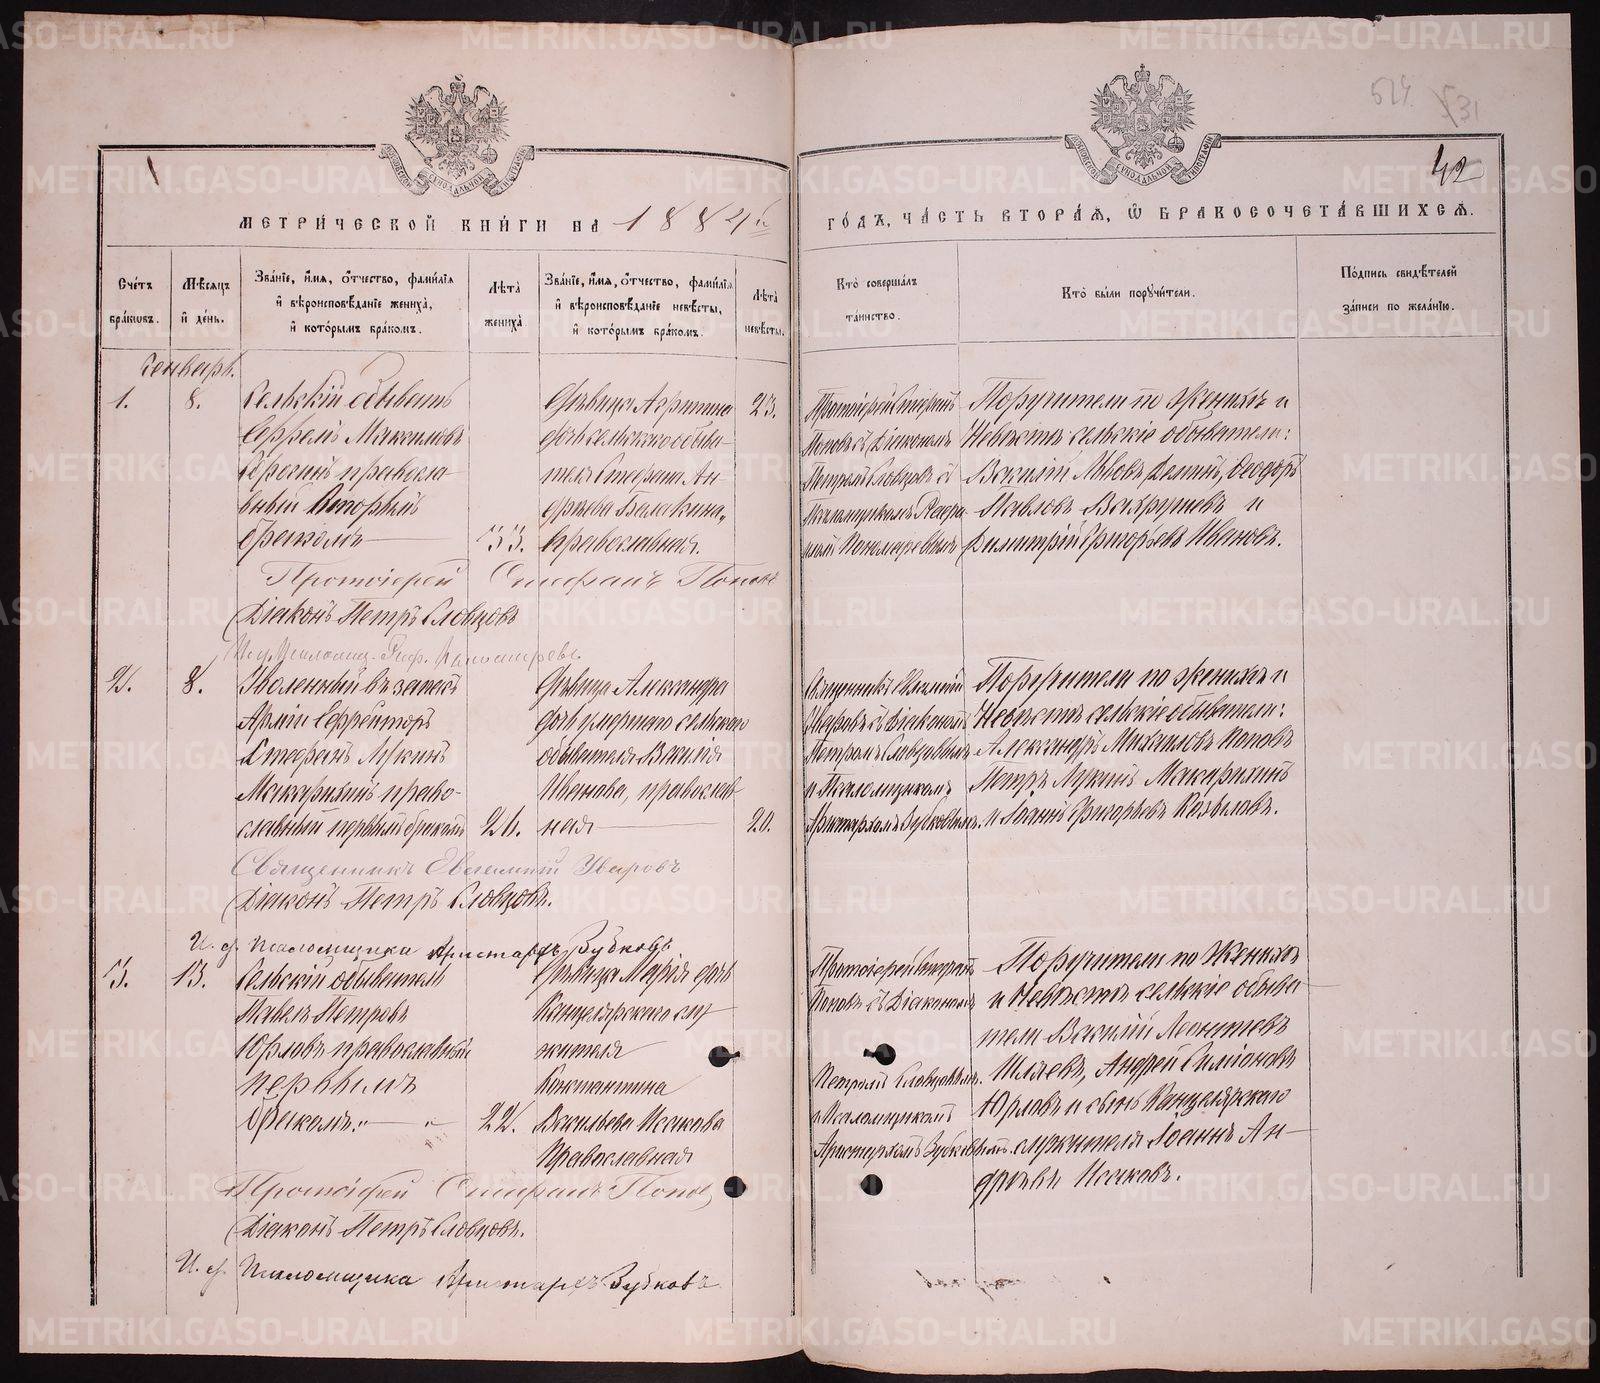 524. 531
42
МЕТРИ́ЧЕСКОЙ КНИ́ГИ НА 1884 й
ГО́ДЪ, ЧА́СТЬ ВТОРА́Я, Ѿ БРАКОСОЧЕТА́ВШИХСЯ.
Сче́тъ бра́кѡвъ.
Мѣ́сяцъ и҆ де́нь.
Зва́нїе, и҆́мя, ѻ҆́тчество, фамѝлїя и҆ вѣроисповѣ́данїе жениха̀, и҆ кото́рымъ бра́комъ.
Лѣ́та жениха̀
Зва́нїе, и҆́мя, ѻ҆́тчество, фамѝлїя и҆ вѣроисповѣ́данїе невѣ́сты, и҆ кото́рымъ бра́комъ.
Лѣ́та невѣ́сты.
Кто̀ соверша́лъ та́инство.
Кто̀ бы́ли порꙋчи́тели.
По́дпись свидѣ́телей за́писи по жела́нїю.
Генварь.
1. 8.
Сельскій обыват
Максимовъ
правосла-
вный Вторымъ
бракомъ 33.
Дѣвица
дочь сельскаго обыва-
теля Стефана Ан-
дреева Балакина,
православная.
23.
Протоіерей Стефанъ
Поповъ съ Діакономъ
Петромъ Словцовъ съ
Псаломщикомъ
Пономаревымъ
Поручители по женихѣ и
Невѣстѣ сельскіе обыватели:
Василій Львовъ Ѳеодоръ
Павловъ Вахрушевъ и
Димитрій Григорьевъ Ивановъ.
Протоіерей Стефанъ Поповъ
Діаконъ Петръ Словцовъ
Пономаревъ
2. 8.
Уволенный въ запасъ
Арміи Ефрейторъ
Стефанъ Лукинъ
Макарихинъ право-
славный первымъ бракомъ 26.
Дѣвица Александра
дочь умершаго сельскаго
обывателя Василія
Иванова, православ-
ная 20.
Священникъ Евгеній
Уваровъ съ Діакономъ
Петромъ Словцовымъ
и Псаломщикомъ
Аристархомъ Зубковымъ.
Поручители по женихѣ и
Невѣстѣ сельскіе обыватели:
Александръ Михаиловъ Поповъ
Петръ Лукинъ Макарихинъ
и Іоаннъ Григорьевъ
Священникъ Уваровъ
Діаконъ Петръ Словцовъ.
И. д. Псаломщика Аристархъ Зубковъ
3. 13.
Сельскій обыватель
Павелъ Петровъ
Юрловъ православный
первымъ
бракомъ. 22.
Дѣвица Марія дочь
Канцелярскаго слу-
жителя
Константина
Васильева Исакова
Православная
Протоіерей Стефанъ
Поповъ съ Діакономъ
Петромъ Словцовымъ
и Псаломщикомъ
Аристархомъ Зубковымъ.
Поручители по Женихѣ
и Невѣстѣ сельскіе обыва-
тели Василій Леонтьевъ
Шляевъ, Андрей Симіоновъ
Юрловъ и сынъ Канцелярскаго
служителя Іоаннъ Ан-
дреевъ Исаковъ.
Протоіерей Стефанъ Поповъ
Діаконъ Петръ Словцовъ.
И. д. Псаломщика Аристархъ Зубковъ
METRIKI.GASO-URAL.RU